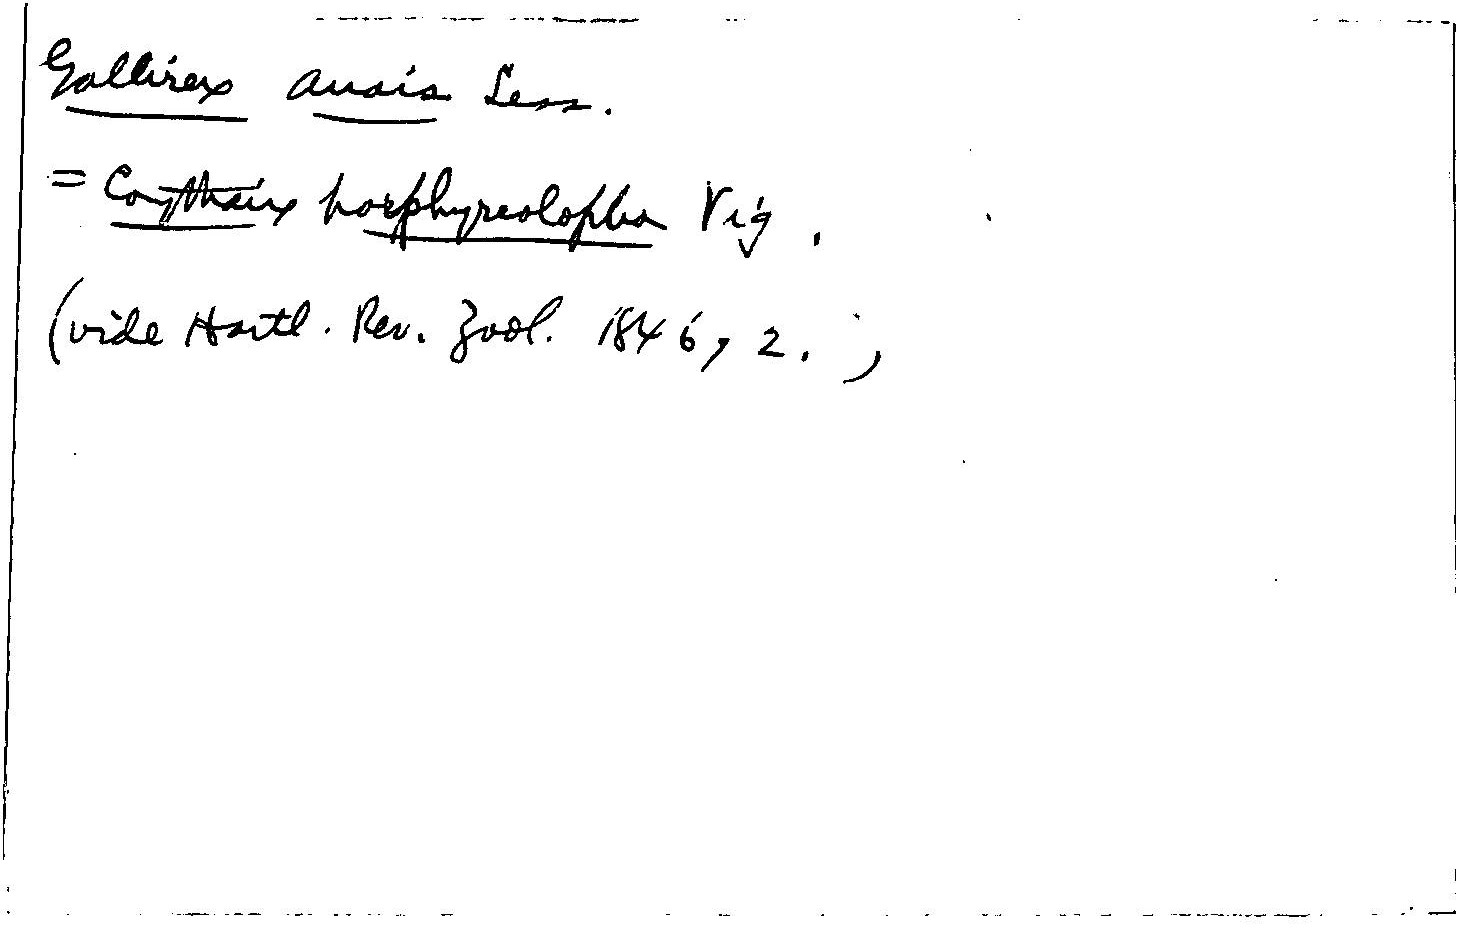 Gallirex anais Less.
= Corythaix porphyreolopha Vig.
(vide Hartl. Rev. Zool. 1846, 2.)